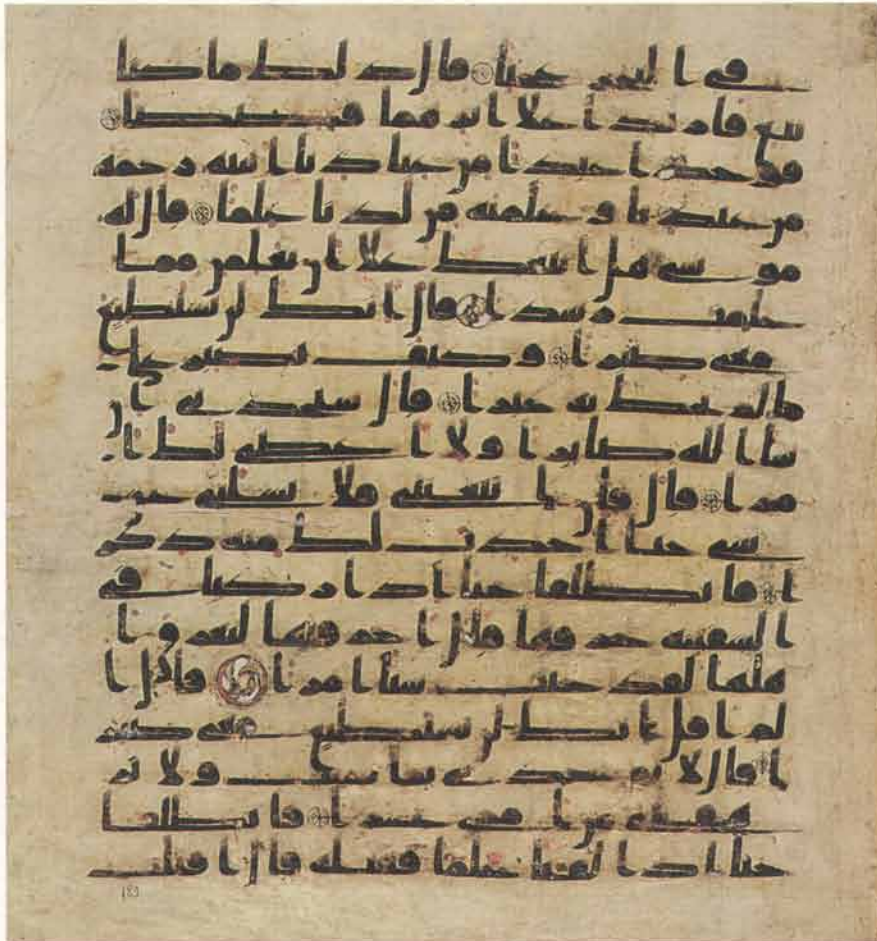 في البحر عجبا قال ذلك ما كنا
نبغ فارتدا علا اثرهما قصصا
فوجدا عبدا من عبادنا اتينه رحمة
من عندنا وعلمنه من لدنا علما قال له
موسى هل اتبعك علا ان تعلمن مما
علمت رشدا قال انك لن تستطيع
معي صبرا وكيف تصبر على
ما لم تحط به خبرا قال ستجدني ان
شا الله صابرا ولا اعصي لك ا
مرا قال فان اتبعتني فلا تسلني عن
شي حتا احدث لك منه ذكر
ا فانطلقا حتا اذا ركبا في
السفينة خرقها قال اخرقتها لتغرق ا
هلها لقد جيت شيا امرا قال ا
لم اقل انك لن تستطيع معي صبر
ا قال لا تواخذني بما نسيت ولا تر
هقني من امري عسرا فانطلقا
حتا اذا لقيا غلما فقتله قال اقتلت
183